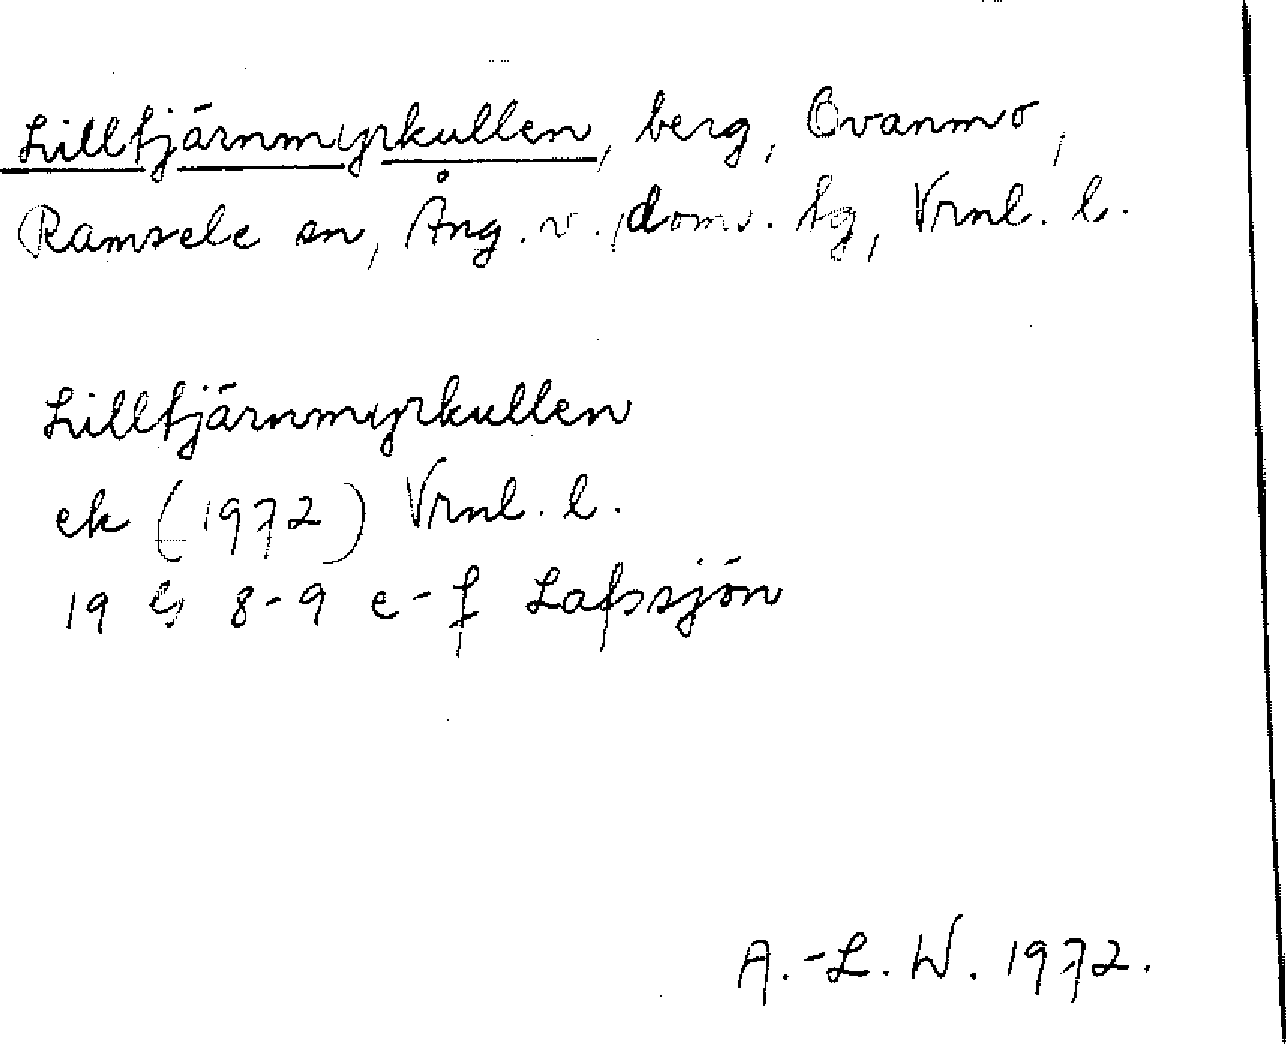 Lilltjärnmyrkullen, berg, Ovanmo,
Ramsele sn, Ång. v. doms. tg, Vrnl. l.
Lilltjärnmyrkullen
ek (1972) Vrnl. l.
19 G 8-9 e-f Lafssjön
A.-L. W. 1972.